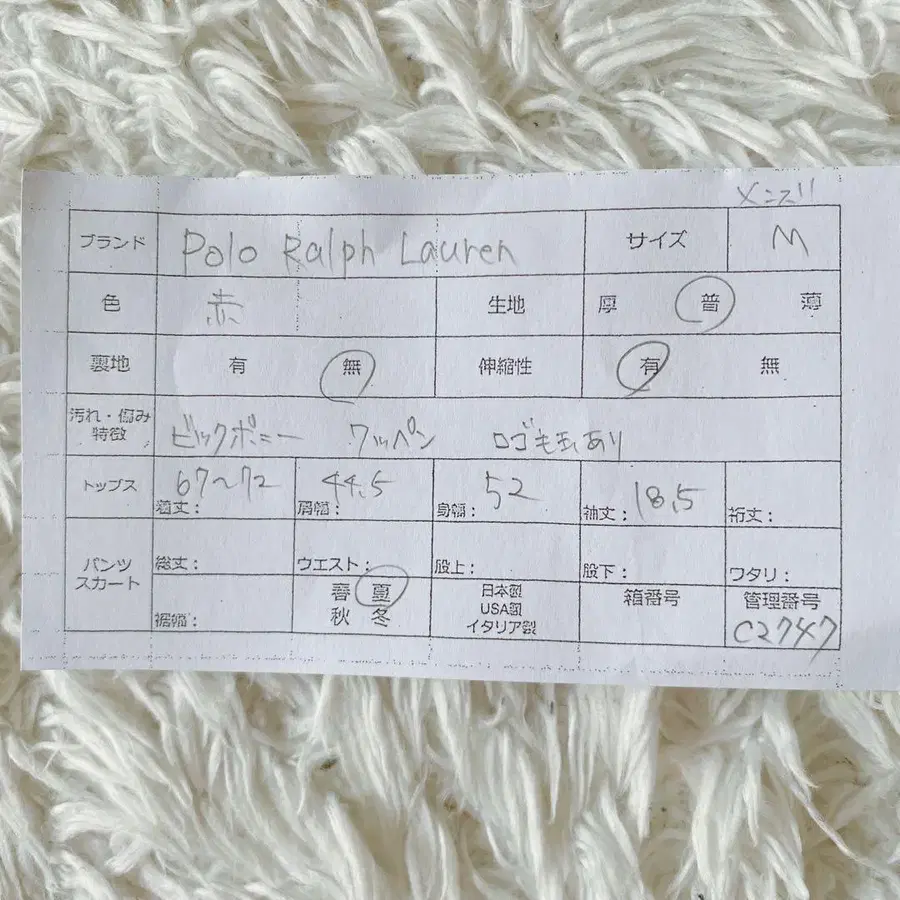 メンズ
ブランド Polo Ralph Lauren サイズ M
色 赤 生地 厚 普 薄
裏地 有 無 伸縮性 有 無
汚れ・傷み
特徴 ビックポニー ワッペン ロゴ毛玉あり
トップス 67~72 44.5 52 18.5
着丈: 肩幅: 身幅: 袖丈: 裄丈:
パンツ
スカート 総丈: ウエスト: 股上: 股下: ワタリ:
裾幅: 春 夏
秋 冬
日本製
USA製
イタリア製
箱番号 管理番号
C2747